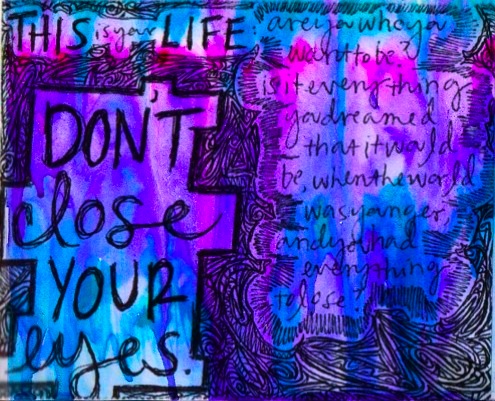 THIS is your LIFE.
DON'T
close
YOUR
eyes.
are ya who ya
want to be?
is it everything
ya dreamed
that it would
be, when the world
was younger
and you had
everything
to lose?